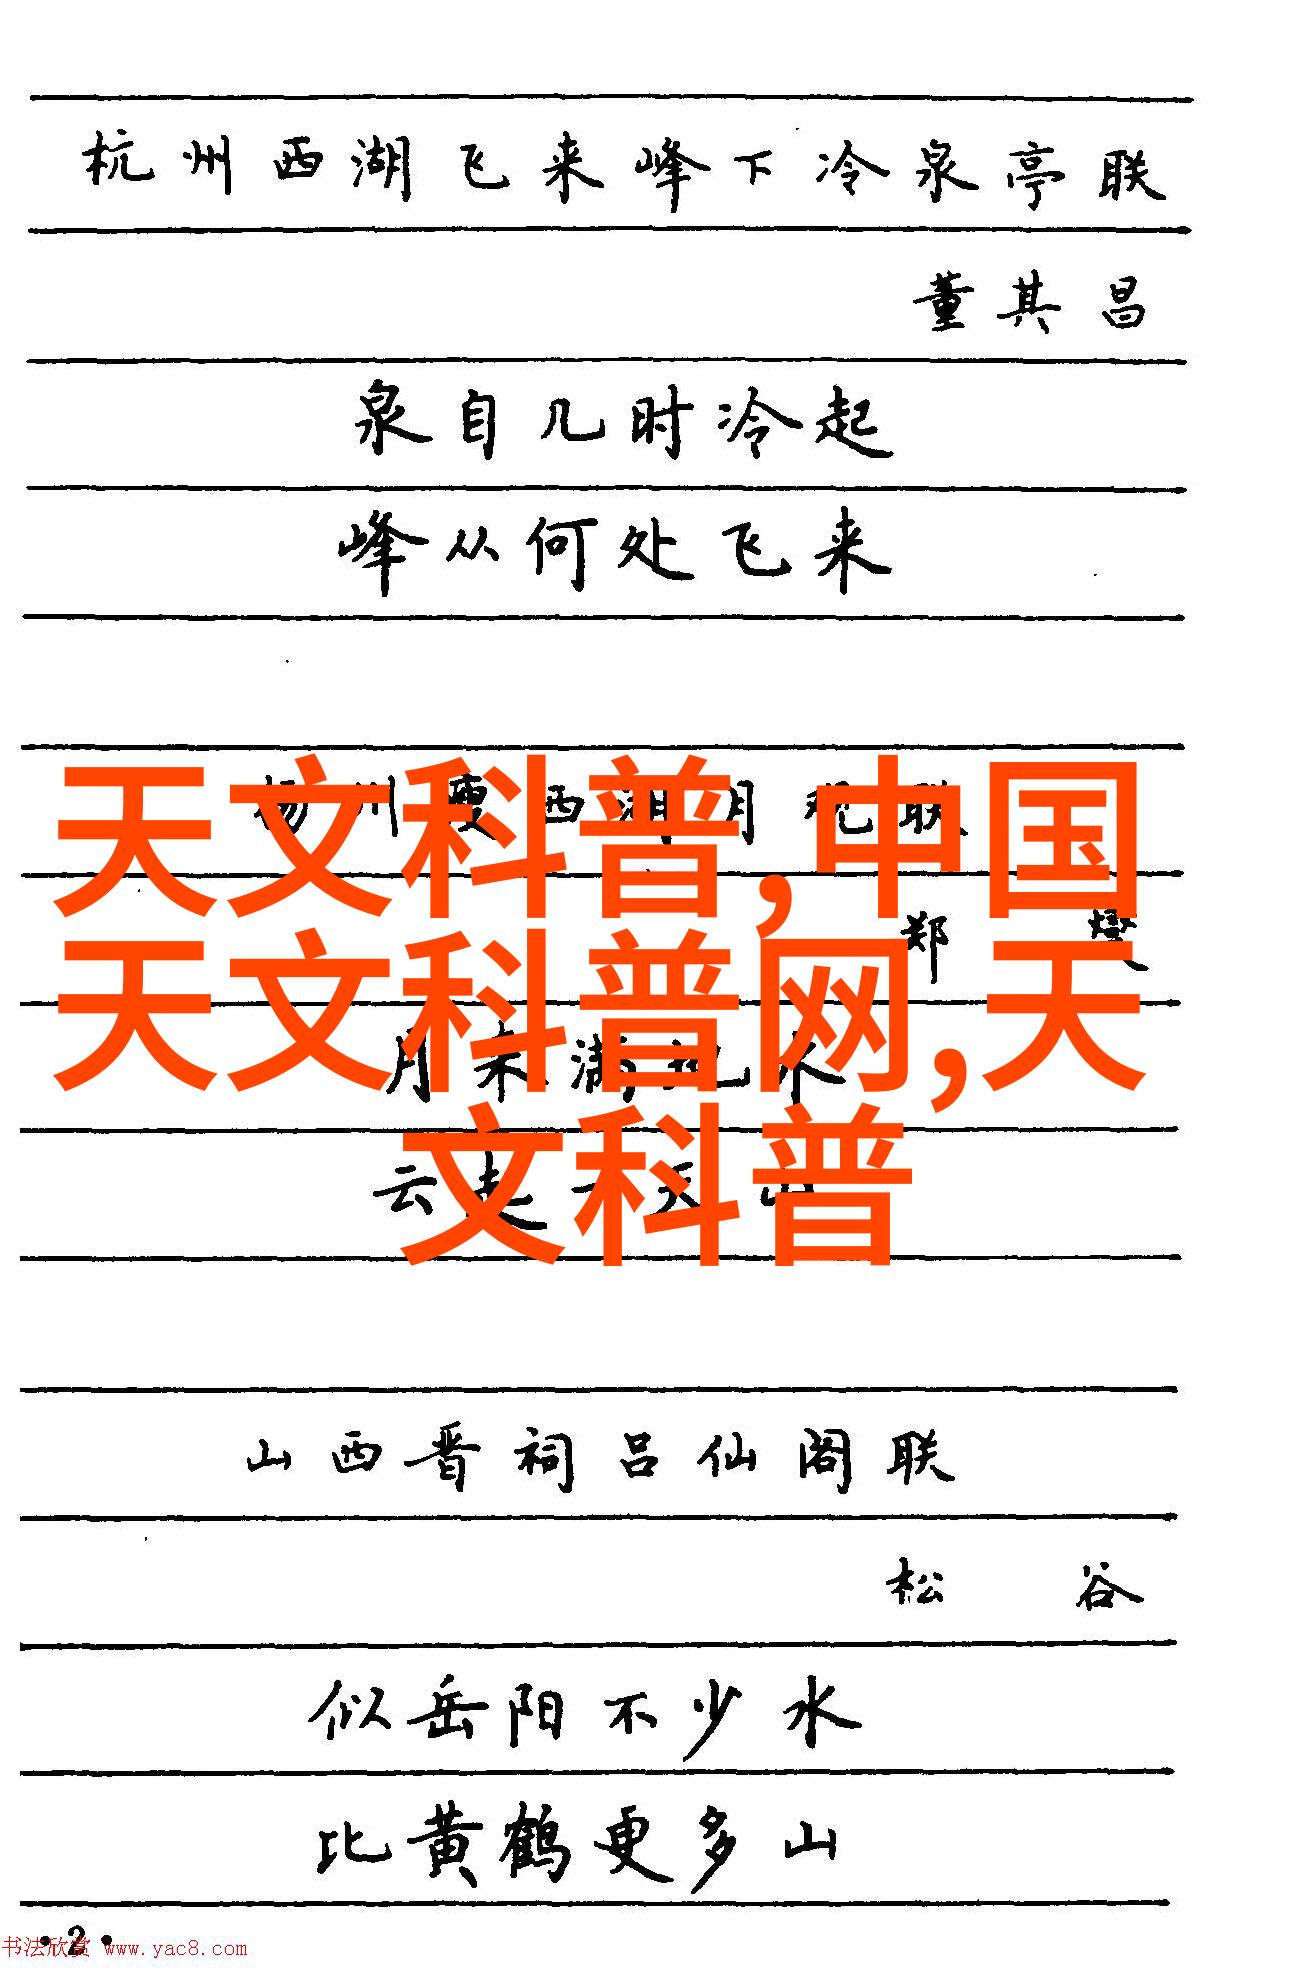 杭州西湖飞来峰下冷泉亭联
董其昌
泉自几时冷起
峰从何处飞来
天文科普,中国
天文科普网,天
文科普
扬州瘦西湖月观联
郑燮
月来满地水
云起一天山
山西晋祠吕仙阁联
松谷
似岳阳不少水
比黄鹤更多山
·2·
书法欣赏 www.yac8.com